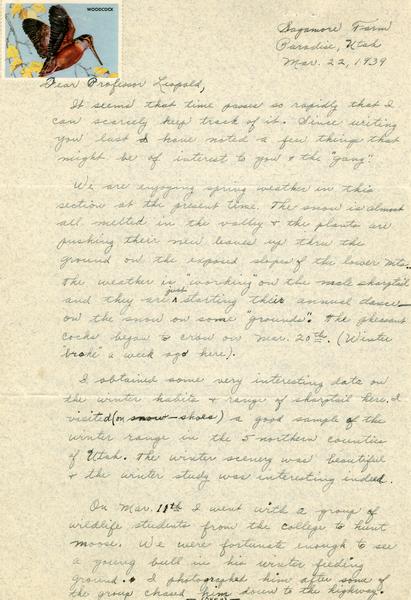 WOODCOCK
Sagamore Farm
Paradise, Utah
Mar. 22, 1939
Dear Professor Leopold,
It seems that time passes so rapidly that I
can scarcely keep track of it. Since writing
you last I have noted a few things that
might be of interest to you & the "gang".
We are enjoying spring weather in this
section at the present time. The snow is almost
all melted in the valley & the plants are
pushing their new leaves up thru the
ground on the exposed slopes of the lower mts.
The weather is "working" on the male sharptail
and they are just starting their annual dance
on the snow on some "grounds". The pheasant
cocks began to crow on Mar. 20th. (Winter
"broke" a week ago here).
I obtained some very interesting data on
the winter habits & range of sharptail here. I
visited (on snow-shoes) a good sample of the
winter range in the 5 northern counties
of Utah. The winter scenery was beautiful
& the winter study was interesting indeed.
On Mar. 11th I went with a group of
wildlife students from the college to hunt
moose. We were fortunate enough to see
a young bull in his winter feeding
ground. I photographed him after some of
the group chased him down to the highway.
(OVER)